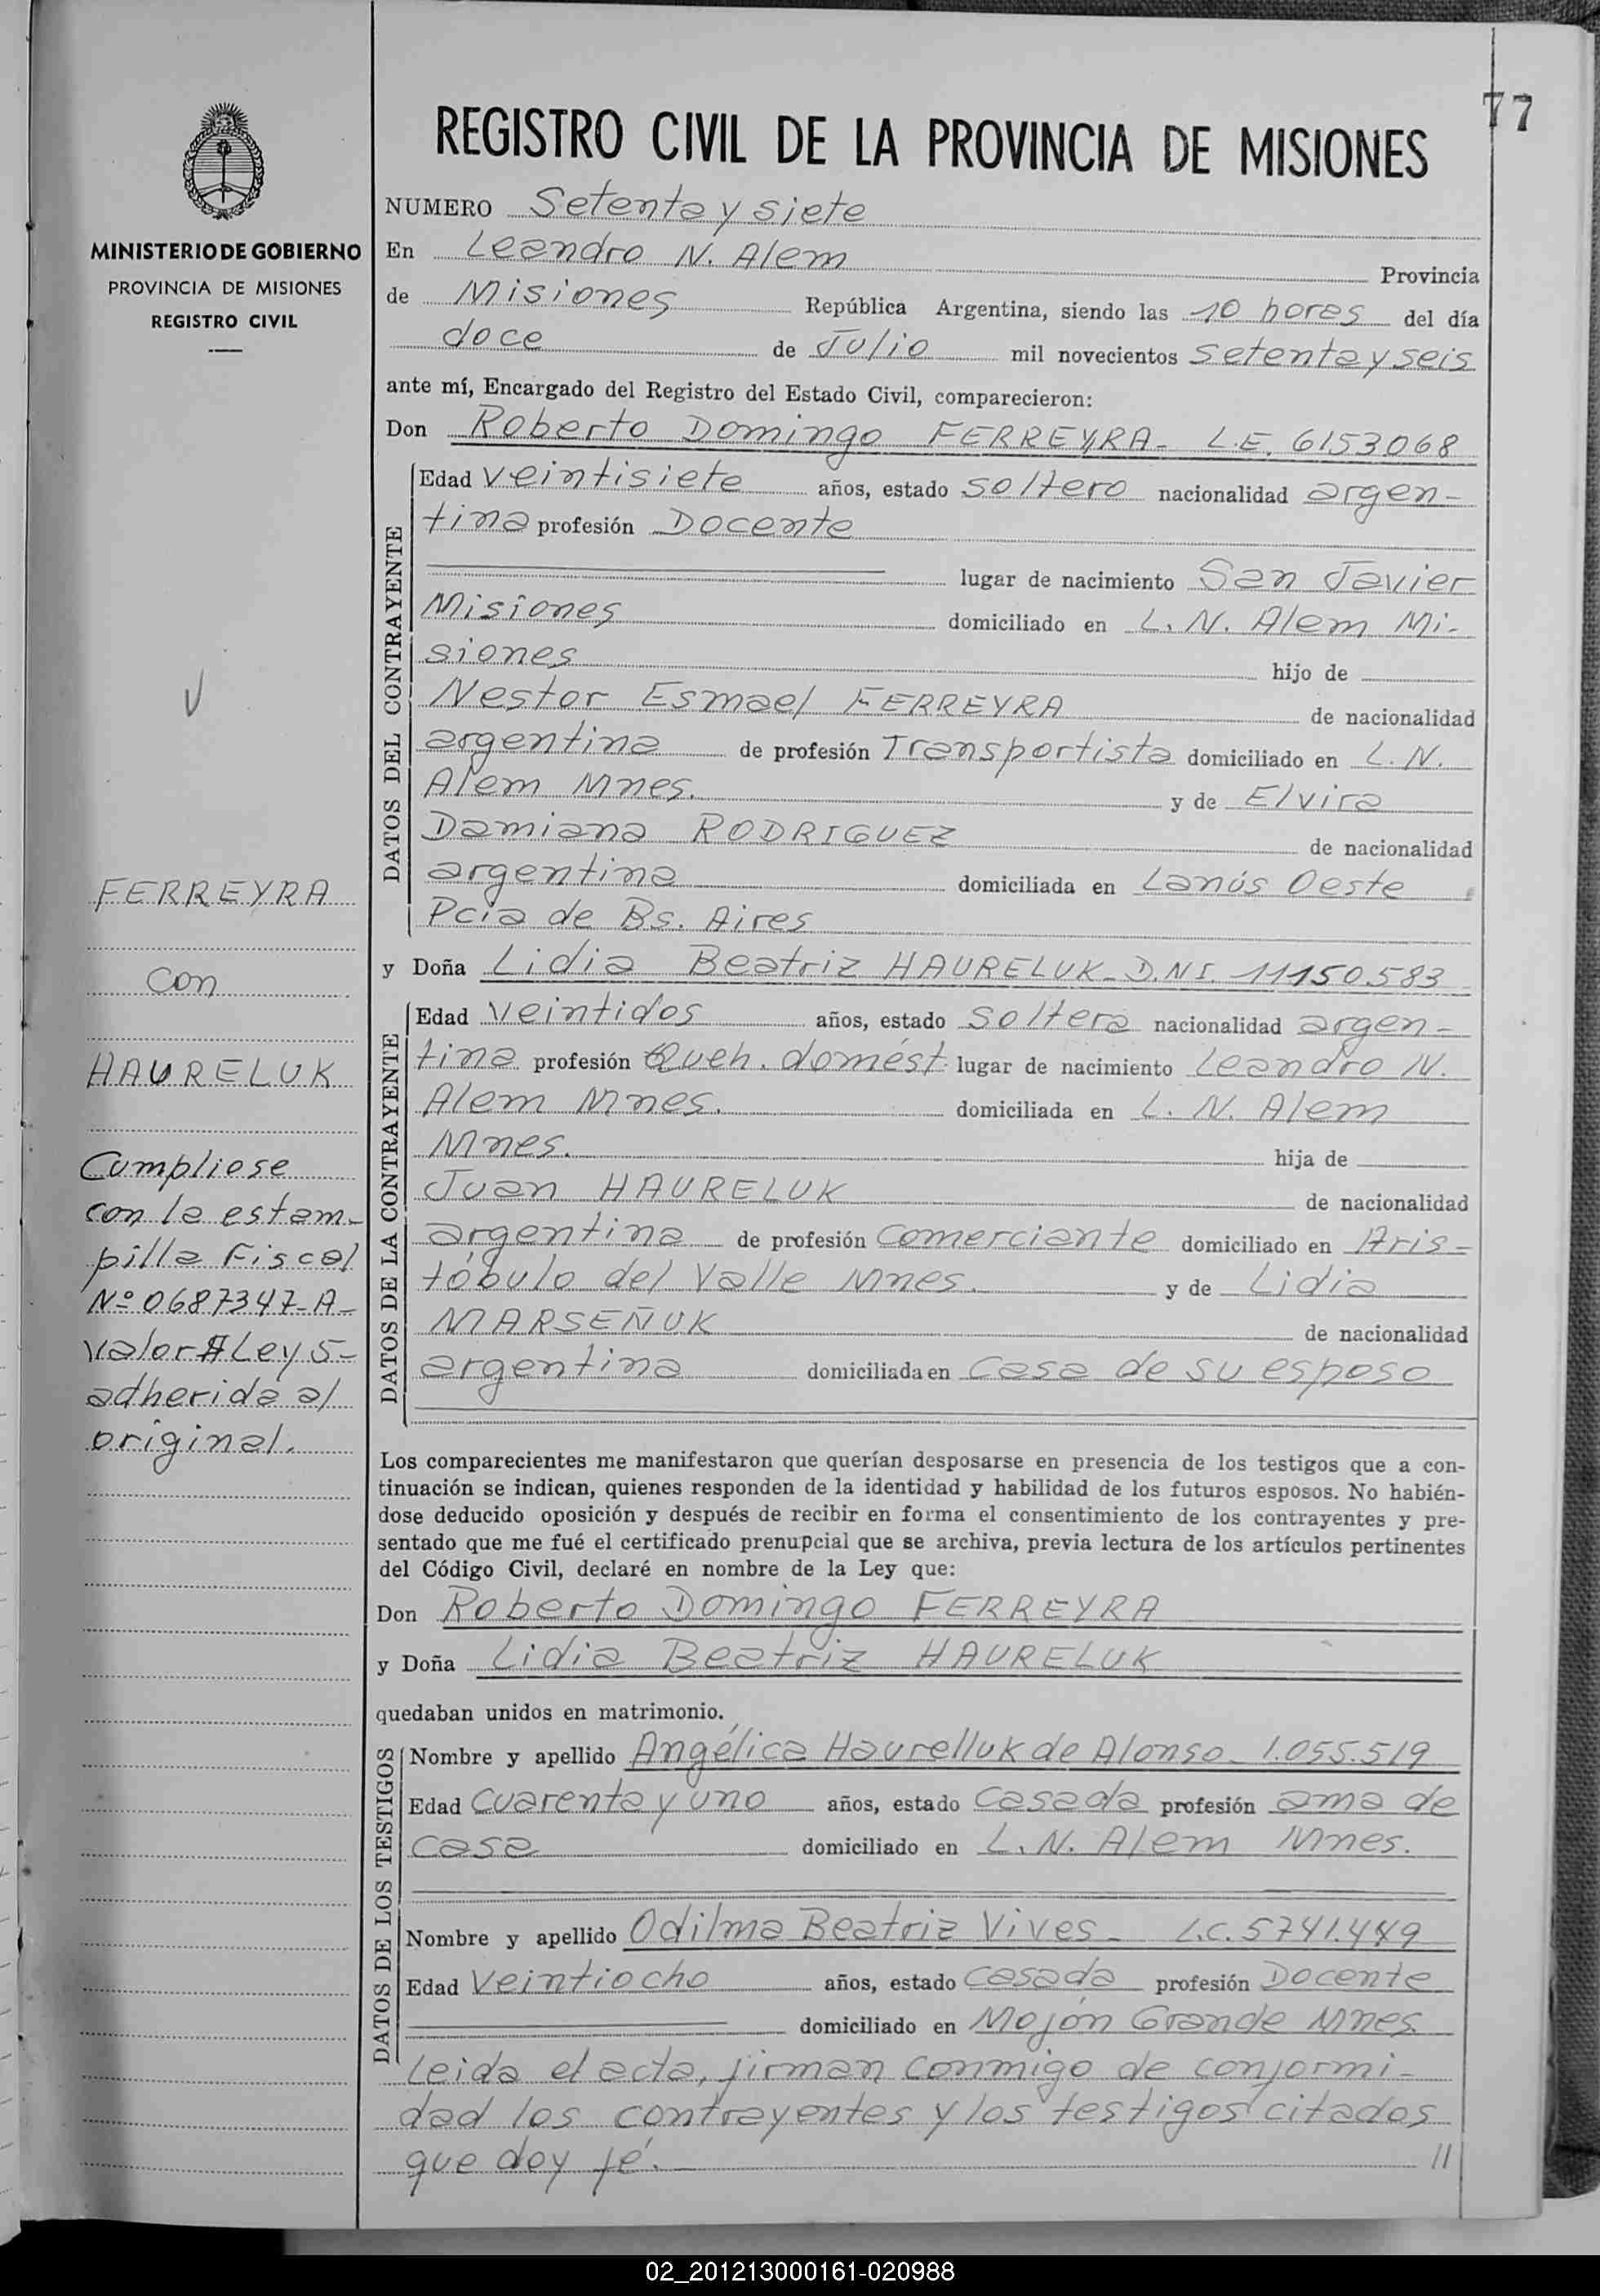 77
MINISTERIO DE GOBIERNO
PROVINCIA DE MISIONES
REGISTRO CIVIL
FERREYRA
con
HAURELUK
Cumpliose
con la estam-
pilla Fiscal
Nº 0687347-A-
valor $ Ley 5-
adherida al
original.
REGISTRO CIVIL DE LA PROVINCIA DE MISIONES
NUMERO Setenta y siete
En Leandro N. Alem Provincia
de Misiones República Argentina, siendo las 10 horas del día
doce de Julio mil novecientos setenta y seis
ante mí, Encargado del Registro del Estado Civil, comparecieron:
Don Roberto Domingo FERREYRA- L.E. 6153068
DATOS DEL CONTRAYENTE
Edad veintisiete años, estado soltero nacionalidad argen-
tina profesión Docente
lugar de nacimiento San Javier
Misiones domiciliado en L. N. Alem Mi-
siones hijo de
Nestor Esmael FERREYRA de nacionalidad
argentina de profesión Transportista domiciliado en L. N.
Alem Mnes. y de Elvira
Damiana RODRIGUEZ de nacionalidad
argentina domiciliada en Lanús Oeste
Pcia de Bs. Aires
y Doña Lidia Beatriz HAURELUK- D.N.I. 11150.583
DATOS DE LA CONTRAYENTE
Edad veintidos años, estado soltera nacionalidad argen-
tina profesión Queh. domést. lugar de nacimiento Leandro N.
Alem Mnes. domiciliada en L. N. Alem
Mnes. hija de
Juan HAURELUK de nacionalidad
argentina de profesión comerciante domiciliado en Aris-
tóbulo del Valle Mnes. y de Lidia
MARSEÑUK de nacionalidad
argentina domiciliada en casa de su esposo
Los comparecientes me manifestaron que querían desposarse en presencia de los testigos que a con-
tinuación se indican, quienes responden de la identidad y habilidad de los futuros esposos. No habién-
dose deducido oposición y después de recibir en forma el consentimiento de los contrayentes y pre-
sentado que me fué el certificado prenupcial que se archiva, previa lectura de los artículos pertinentes
del Código Civil, declaré en nombre de la Ley que:
Don Roberto Domingo FERREYRA
y Doña Lidia Beatriz HAURELUK
quedaban unidos en matrimonio.
DATOS DE LOS TESTIGOS
Nombre y apellido Angélica Haurelluk de Alonso- 1.055.519
Edad cuarenta y uno años, estado casada profesión ama de
casa domiciliado en L. N. Alem Mnes.
Nombre y apellido Odilma Beatriz Vives- L.C. 5741.449
Edad veintiocho años, estado casada profesión Docente
domiciliado en Mojón Grande Mnes.
Leida el acta, firman conmigo de conformi-
dad los contrayentes y los testigos citados
que doy fé. //
02_201213000161-020988